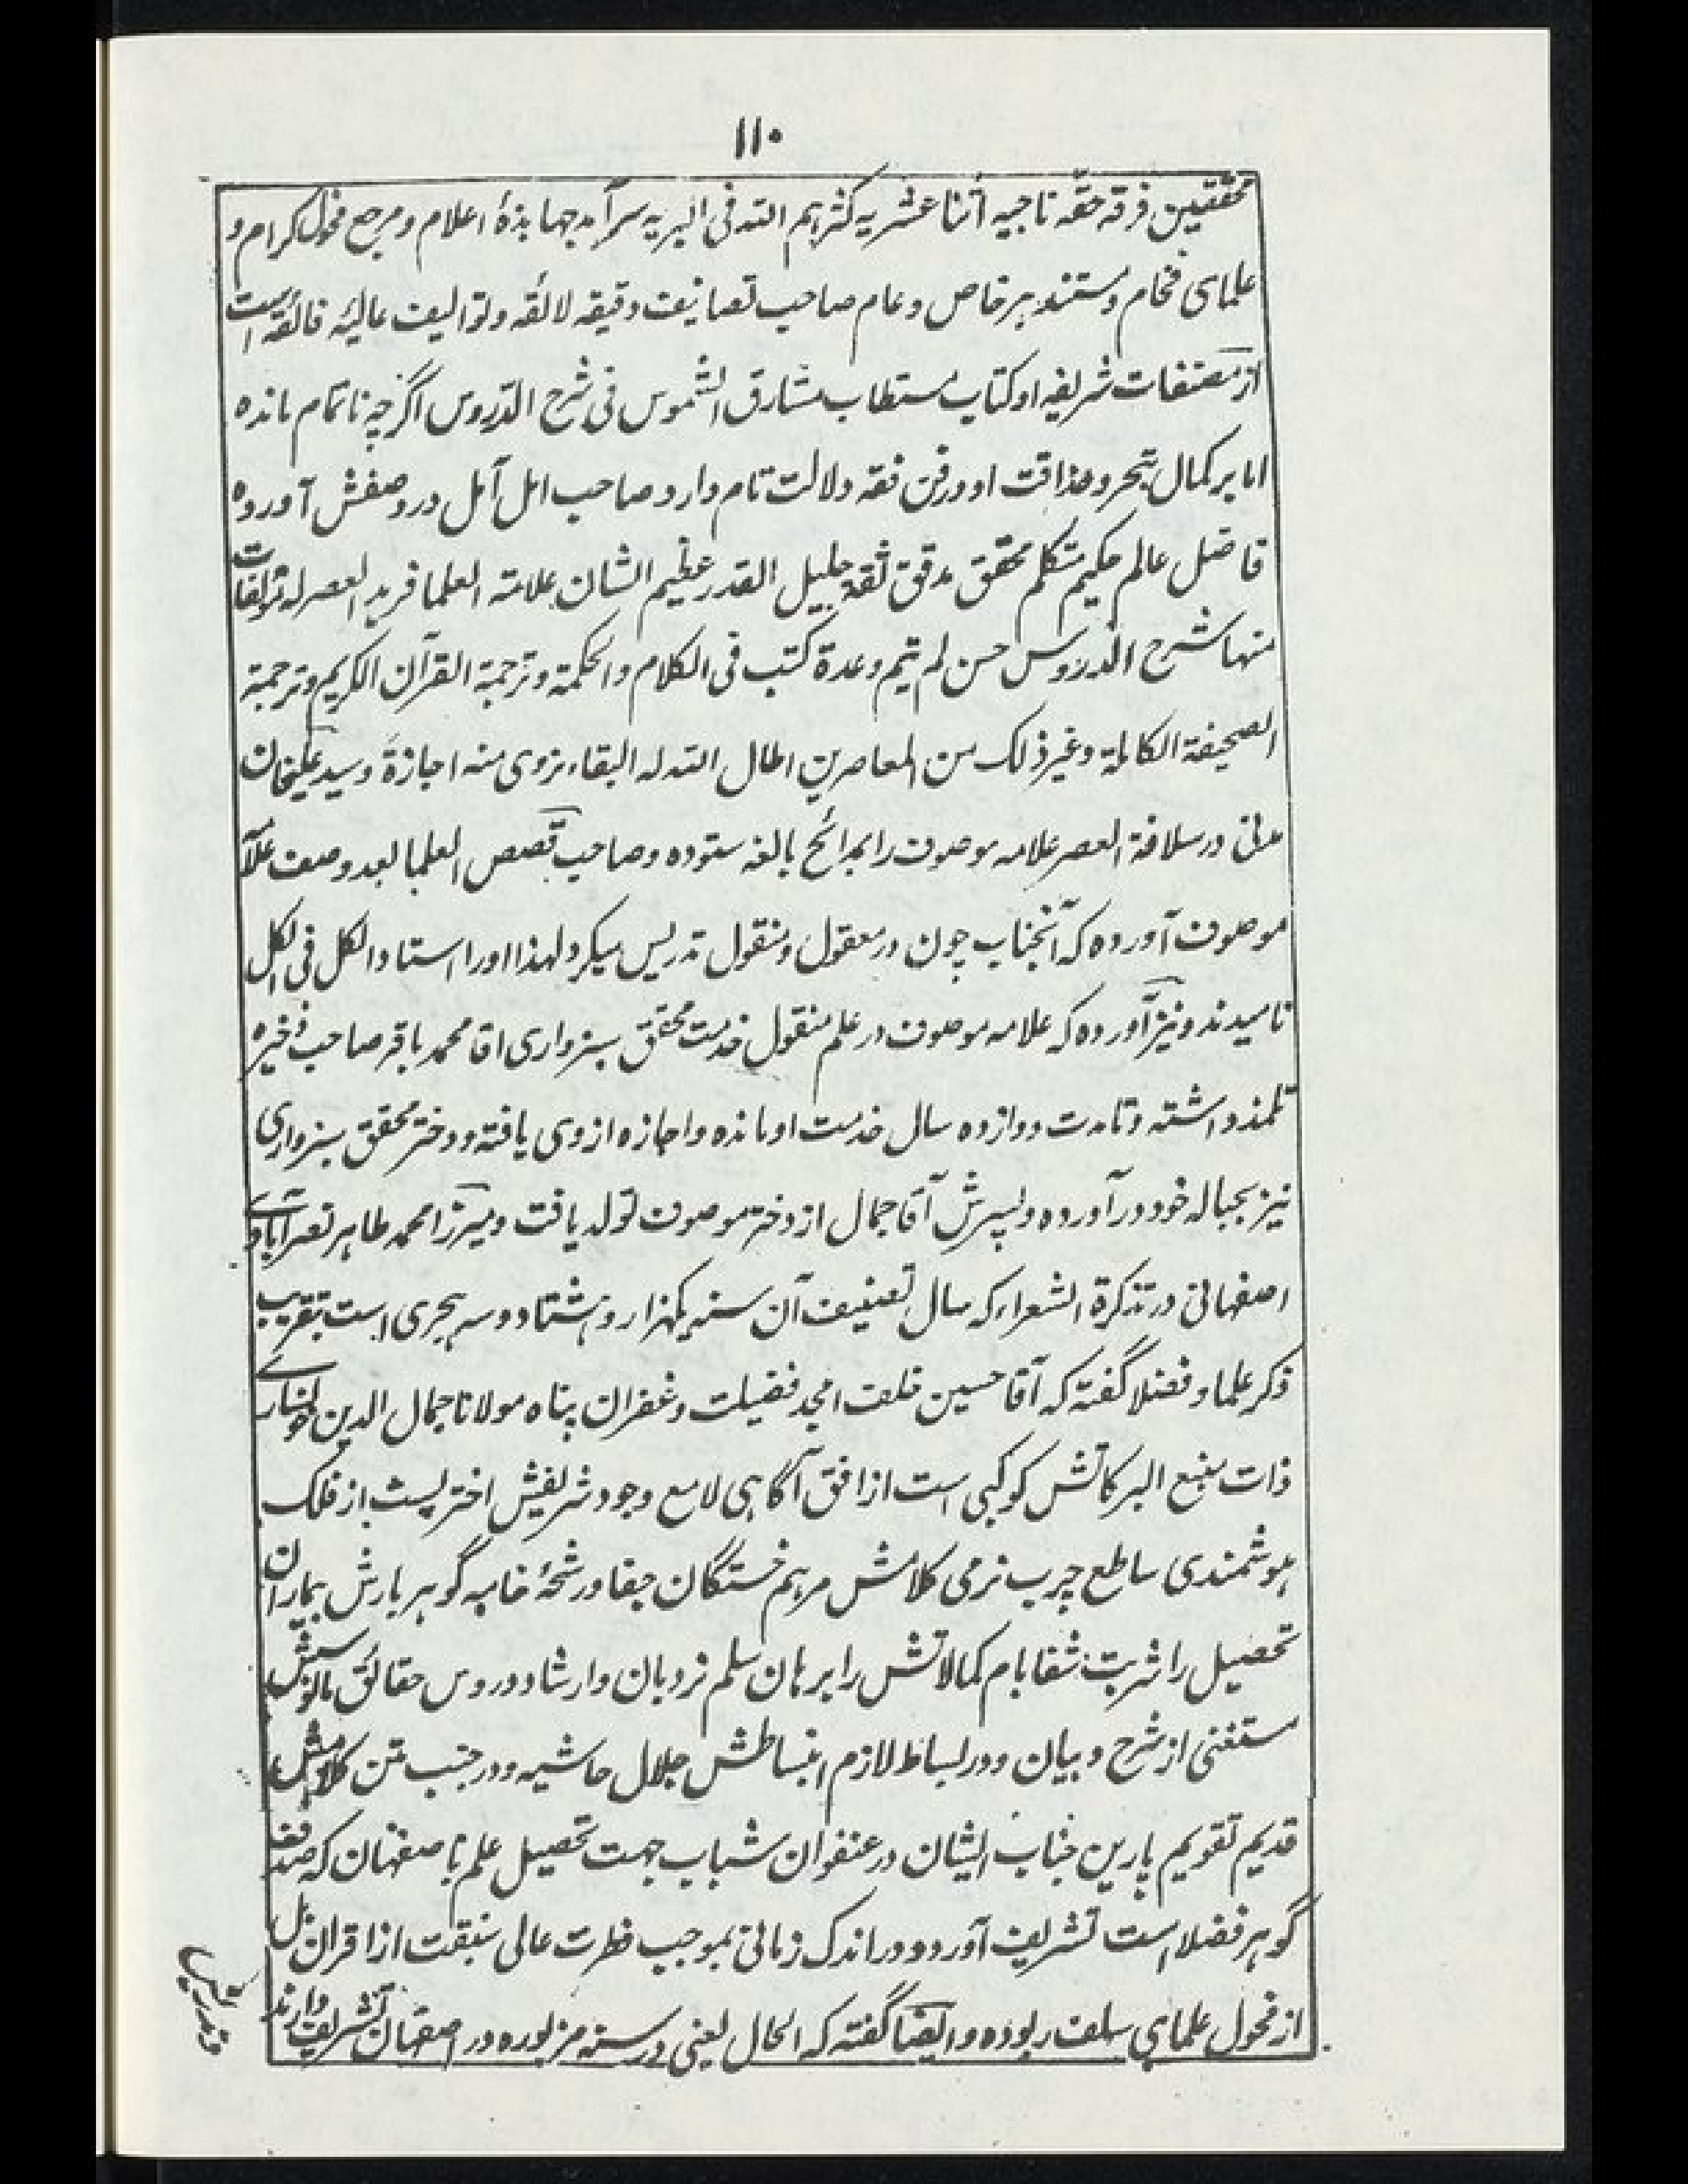 ۱۱۰
محققین فرقه حقّه ناجیه اثنا عشریه کثرهم الله فی البریه سرآمد جهابذهٔ اعلام و مرجع فحول کرام و
علمای فخام و مستند هر خاص و عام صاحب تصانیف دقیقه لائقه و توالیف عالیه فائقه است
از مصنفات شریفه او کتاب مستطاب مشارق الشموس فی شرح الدّروس اگرچه ناتمام مانده
اما بر کمال تبحر و حذاقت او در فن فقه دلالت تام دارد صاحب امل آمل در وصفش آورده
فاضل عالم حکیم متکلم محقق مدقق ثقه جلیل القدر عظیم الشان علامة العلما فرید العصر له مؤلفات
منها شرح الدروس حسن لم یتم و عدة کتب فی الکلام والحکمة و ترجمة القرآن الکریم و ترجمة
الصحیفة الکاملة و غیر ذلک من المعاصرین اطال الله له البقاء نروی منه اجازة و سید علیخان
مدنی در سلافة العصر علامه موصوف را بمدائح بالغه ستوده و صاحب قصص العلما بعد وصف علامه
موصوف آورده که آنجناب چون در معقول و منقول تدریس میکرد لهذا او را استاد الکل فی الکل
نامیدند و نیز آورده که علامه موصوف در علم منقول خدمت محقق سبزواری اقا محمد باقر صاحب ذخیره
تلمذ داشته و تا مدت دوازده سال خدمت او مانده و اجازه از وی یافته و دختر محقق سبزواری
نیز بحباله خود در آورده و پسرش آقا جمال از دختر موصوف تولد یافت و میرزا محمد طاهر نصرآبادی
اصفهانی در تذکرة الشعراء که سال تصنیف آن سنه یکهزار و هشتاد و سه هجری است بتقریب
ذکر علما و فضلا گفته که آقا حسین خلف امجد فضیلت و غفران پناه مولانا جمال الدین خونساری
ذات منبع البرکاتش کوکبی است از افق آگاهی لامع وجود شریفش اختریست از فلک
هوشمندی ساطع چرب نرمی کلامش مرهم خستگان جفا و رشحهٔ خامه گوهر بارش بیماران
تحصیل را شربت شفا بام کمالاتش را برهان سلم نردبان و ارشاد دروس حقائق مانوسش
مستغنی از شرح و بیان و در بساط لازم انبساطش جلال حاشیه و در جنب متن کلامش
قدیم تقویم پارین جناب ایشان در عنفوان شباب جهت تحصیل علم باصفهان که صدف
گوهر فضلا است تشریف آورد و در اندک زمانی بموجب فطرت عالی سبقت از اقران بل
از فحول علمای سلف ربوده و ایضا گفته که الحال یعنی در سنه مزبوره در اصفهان تشریف دارند